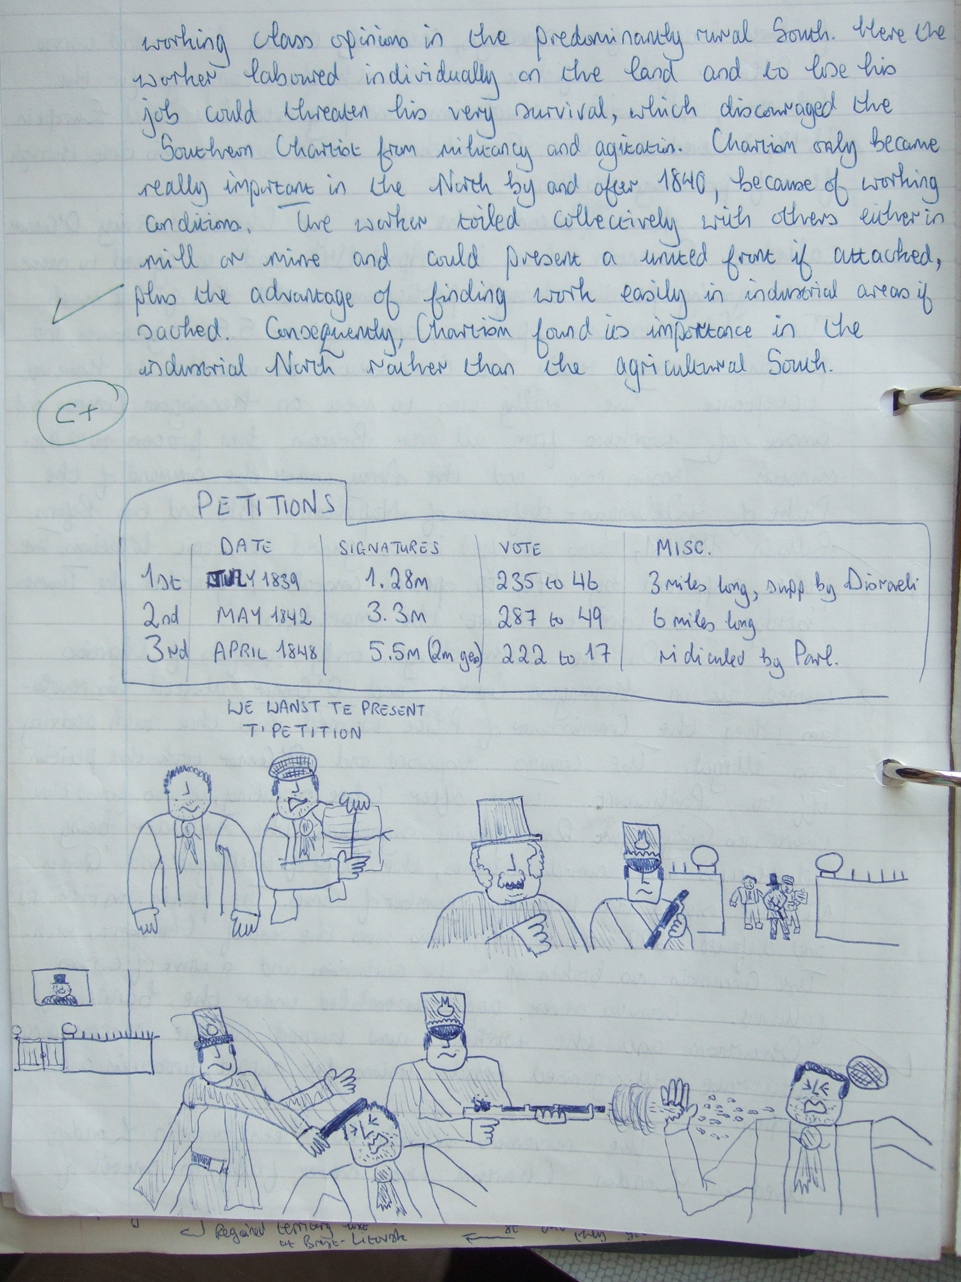 working class opinions in the predominantly rural South. Here the
worker laboured individually on the land and to lose his
job could threaten his very survival, which discouraged the
Southern Chartist from militancy and agitation. Chartism only became
really important in the North by and after 1840, because of working
conditions. The worker toiled collectively with others either in
mill or mine and could present a united front if attacked,
plus the advantage of finding work easily in industrial areas if
sacked. Consequently, Chartism found its importance in the
industrial North rather than the agricultural South.
C+
PETITIONS
DATE SIGNATURES VOTE MISC.
1st JULY 1839 1.28m 235 to 46 3 miles long, supp by Disraeli
2nd MAY 1842 3.3m 287 to 49 6 miles long
3rd APRIL 1848 5.5m (2m gen) 222 to 17 ridiculed by Parl.
WE WANST TE PRESENT
T'PETITION
Regained territory lost
at Brest-Litovsk